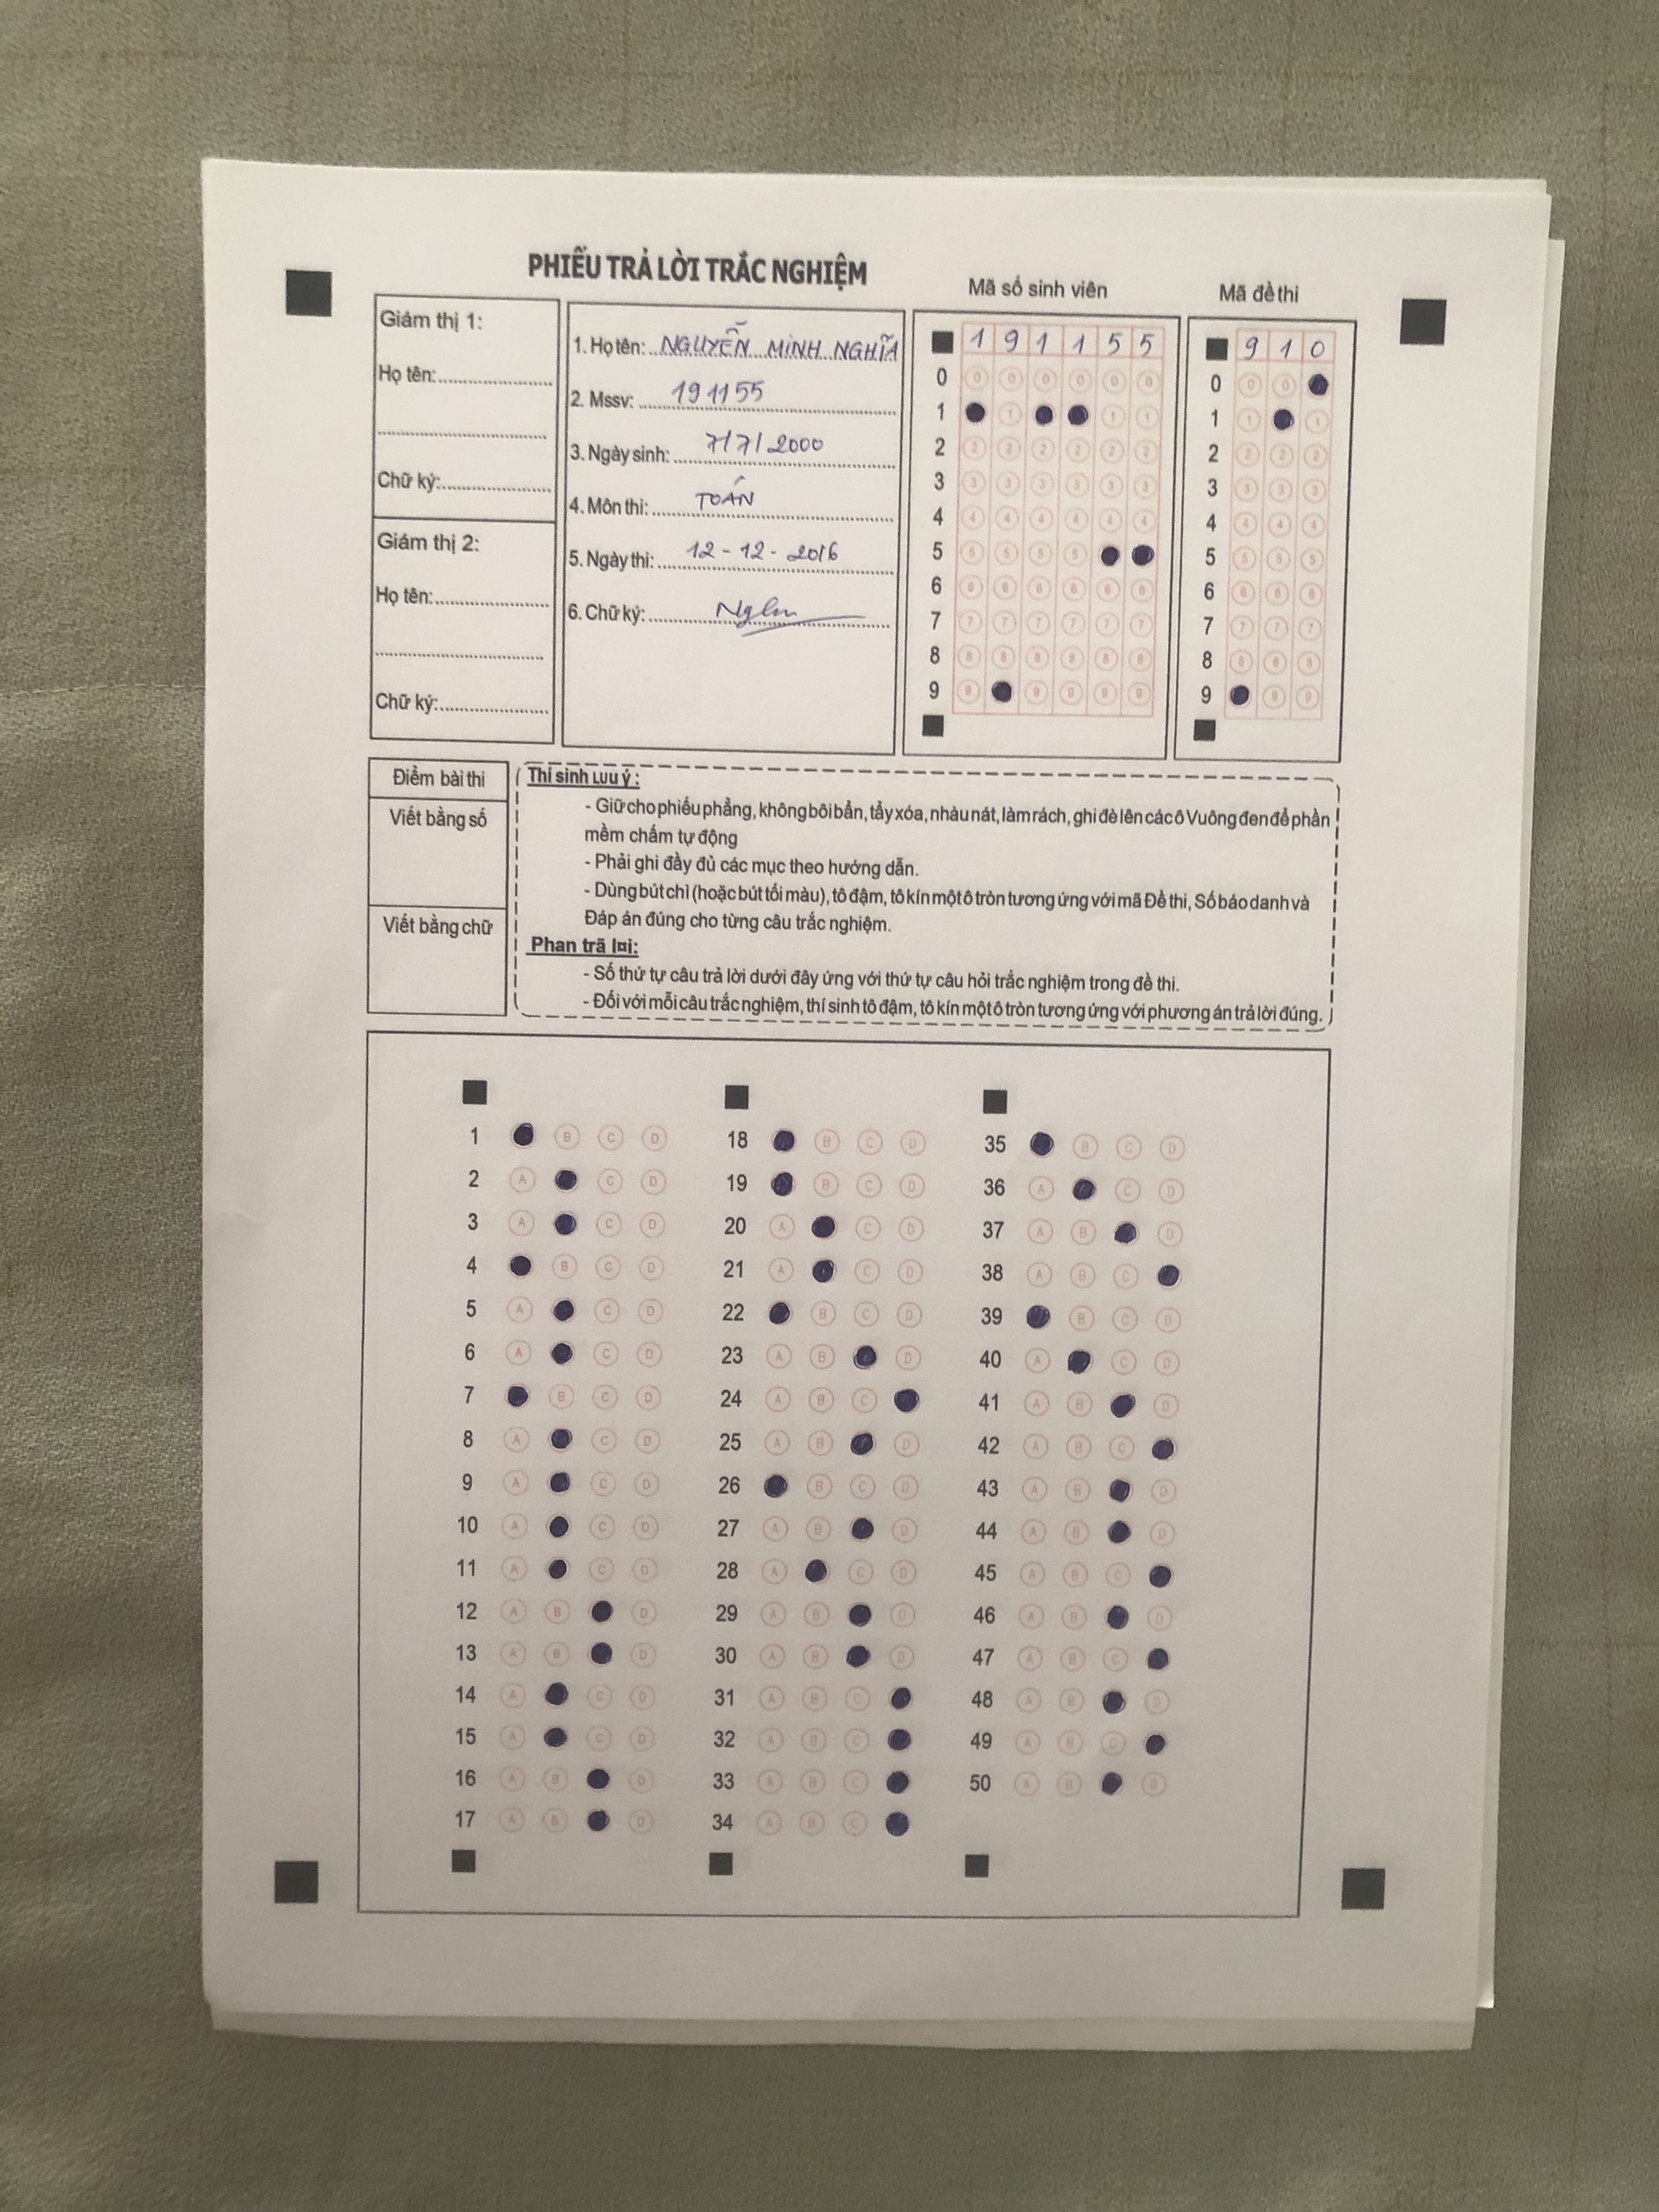 PHIẾU TRẢ LỜI TRẮC NGHIỆM
Mã số sinh viên
Mã đề thi
Giám thị 1:
Họ tên:
Chữ ký:
Giám thị 2:
Họ tên:
Chữ ký:
1. Họ tên: NGUYỄN MINH NGHĨA
2. Mssv: 191155
3. Ngày sinh: 7/7/2000
4. Môn thi: TOÁN
5. Ngày thi: 12-12-2016
6. Chữ ký:
1 9 1 1 5 5
0 0 0 0 0 0 0
1 1 1 1
2 2 2 2 2 2 2
3 3 3 3 3 3 3
4 4 4 4 4 4 4
5 5 5 5 5
6 6 6 6 6 6 6
7 7 7 7 7 7 7
8 8 8 8 8 8 8
9 9 9 9 9 9
9 1 0
0 0 0
1 1 1
2 2 2 2
3 3 3 3
4 4 4 4
5 5 5 5
6 6 6 6
7 7 7 7
8 8 8 8
9 9 9
Điểm bài thi
Viết bằng số
Viết bằng chữ
Thí sinh Lưu ý :
- Giữ cho phiếu phẳng, không bôi bẩn, tẩy xóa, nhàu nát, làm rách, ghi đè lên các ô Vuông đen để phần
mềm chấm tự động
- Phải ghi đầy đủ các mục theo hướng dẫn.
- Dùng bút chì (hoặc bút tối màu), tô đậm, tô kín một ô tròn tương ứng với mã Đề thi, Số báo danh và
Đáp án đúng cho từng câu trắc nghiệm.
Phan trã l¤i:
- Số thứ tự câu trả lời dưới đây ứng với thứ tự câu hỏi trắc nghiệm trong đề thi.
- Đối với mỗi câu trắc nghiệm, thí sinh tô đậm, tô kín một ô tròn tương ứng với phương án trả lời đúng.
1 B C D
2 A C D
3 A C D
4 B C D
5 A C D
6 A C D
7 B C D
8 A C D
9 A C D
10 A C D
11 A C D
12 A B D
13 A B D
14 A C D
15 A C D
16 A B D
17 A B D
18 B C D
19 B C D
20 A C D
21 A C D
22 B C D
23 A B D
24 A B C
25 A B D
26 B C D
27 A B D
28 A C D
29 A B D
30 A B D
31 A B C
32 A B C
33 A B C
34 A B C
35 B C D
36 A C D
37 A B D
38 A B C
39 B C D
40 A C D
41 A B D
42 A B C
43 A B D
44 A B D
45 A B C
46 A B D
47 A B C
48 A B D
49 A B C
50 A B D